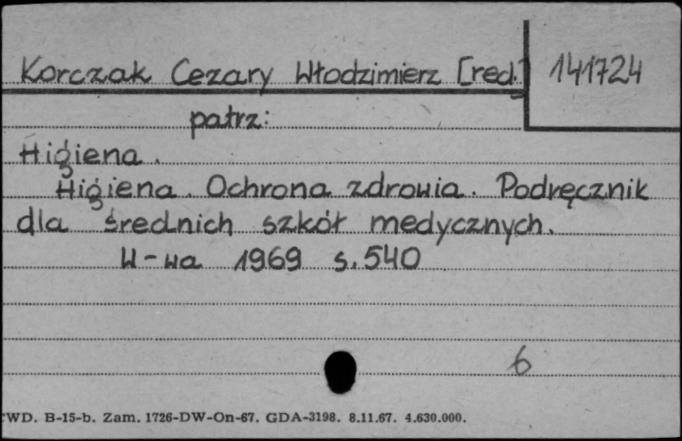 Korczak Cezary Włodzimierz [red.] 141724
patrz:
Higiena.
Higiena. Ochrona zdrowia. Podręcznik
dla średnich szkół medycznych.
W-wa 1969 s. 540
6
CWD. B-15-b. Zam. 1726-DW-On-67. GDA-3198. 8.11.67. 4.630.000.